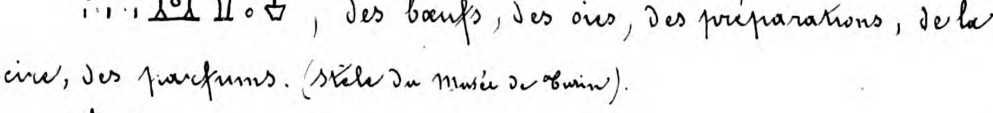 , des bœufs, des oies, des préparations, de la
cire, des parfums. (Stèle du Musée de Turin).